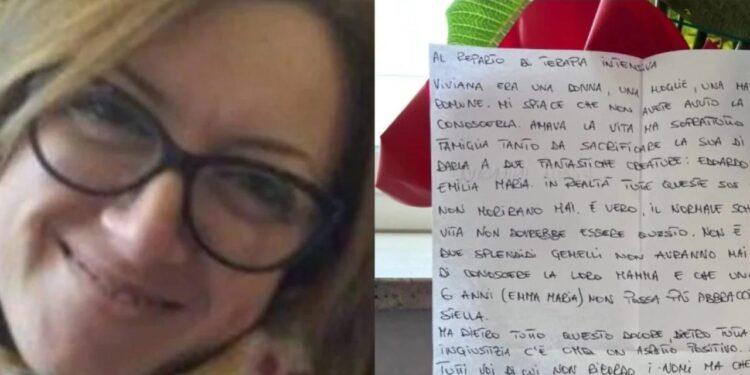 AL REPARTO DI TERAPIA INTENSIVA
VIVIANA ERA UNA DONNA, UNA MOGLIE, UNA MA
MI SPIACE CHE NON AVETE AVUTO LA
CONOSCERLA. AMAVA LA VITA MA SOPRATTUTTO
FAMIGLIA TANTO DA SACRIFICARE LA SUA DI
DARLA A DUE FANTASTICHE CREATURE: EDOARDO
EMILIA MARIA. IN REALTÀ TUTTE QUESTE SOS
NON MORIRANO MAI. È VERO, IL NORMALE SCH
VITA NON DOVREBBE ESSERE QUESTO. NON È
DUE SPLENDIDI GEMELLI NON AVRANNO MAI
DI CONOSCERE LA LORO MAMMA E CHE UN
6 ANNI (EMMA MARIA) NON POSSA PIÙ ABBRACCI
MA DIETRO TUTTO QUESTO DOLORE, DIETRO TUTTA
INGIUSTIZIA C'È UN ASPETTO POSITIVO.
TUTTI VOI DI CUI NON RICORDO I NOMI MA CHE